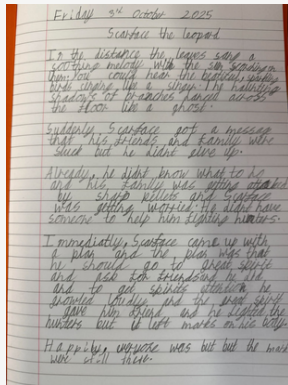 Friday 3rd October 2025
Scarface the leopard
In the distance the leaves sang a
soothing melody with the sun
them. You could hear the
birds singing like a singer. The haunting
shadows of branches danced across
the floor like a ghost.
Suddenly, Scarface got a message
that his friends and family were
stuck but he didnt give up.
Already, he didnt know what to he
and his family was getting attacked
by sharp pellets and Scarface
was getting worried. He didnt have
someone to help him fighting hunters.
Immediatly, Scarface came up with
a plan and the plan was that
he should go to great spirit
and ask for friendship
and to get spirits attention he
growled loudly and the great spirit
gave him friend and he fighted the
hunters but it left marks on his body.
Happily, everyone was but but the mark
were still there.